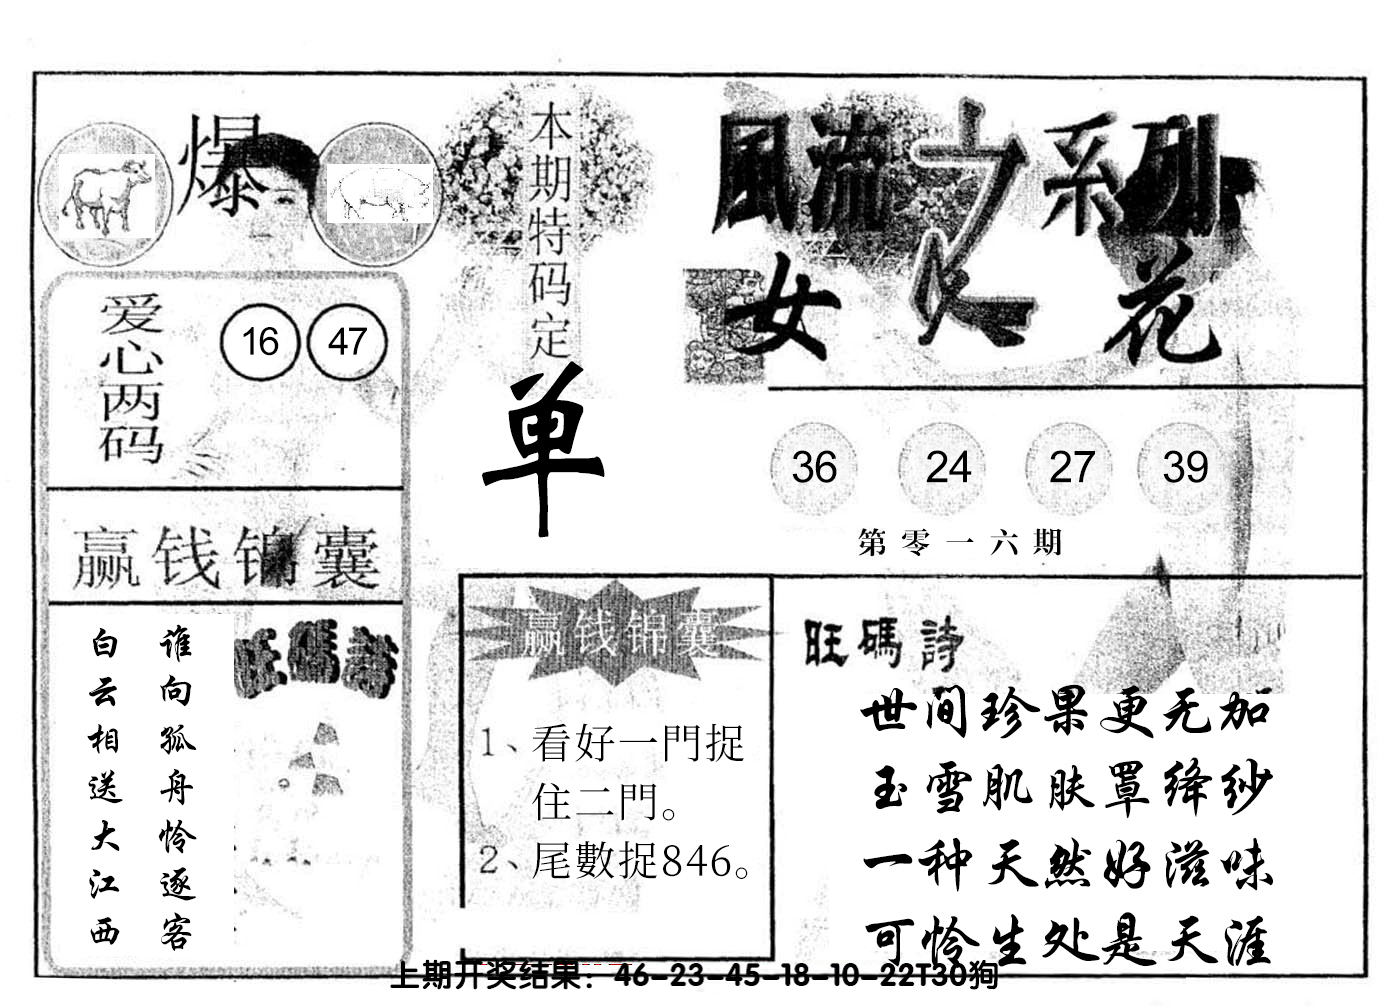 爆
本期特码定
单
風流之系列
女人花
爱心两码
16 47
36 24 27 39
第零一六期
赢钱锦囊
旺碼詩
谁向孤舟怜逐客
白云相送大江西
赢钱锦囊
1、看好一門捉
住二門。
2、尾數捉846。
旺碼詩
世间珍果更无加
玉雪肌肤罩绛纱
一种天然好滋味
可怜生处是天涯
上期开奖结果：46-23-45-18-10-22T30狗